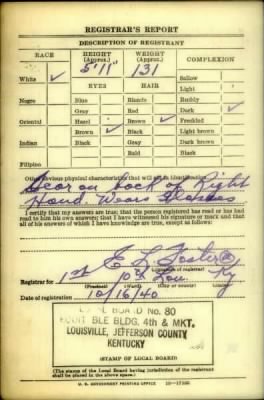 REGISTRAR'S REPORT
DESCRIPTION OF REGISTRANT
RACE HEIGHT (Approx.) WEIGHT (Approx.) COMPLEXION
5'11" 131
White ✓ EYES HAIR Sallow
Light
Negro Blue Blonde Ruddy
Gray Red Dark ✓
Oriental Hazel Brown ✓ Freckled
Brown ✓ Black Light brown
Indian Black Gray Dark brown
Bald Black
Filipino
Other obvious physical characteristics that will aid in identification
Scar on back of Right
Hand. Wears Glasses
I certify that my answers are true; that the person registered has read or has had
read to him his own answers; that I have witnessed his signature or mark and that
all of his answers of which I have knowledge are true, except as follows:
E. L.
(Signature of registrar)
Registrar for 1st 10th Lou. Ky
(Precinct) (Ward) (City or county) (State)
Date of registration 10/16/40
BOARD NO. 80
BLE BLDG. 4th & MKT.
LOUISVILLE, JEFFERSON COUNTY
KENTUCKY
(STAMP OF LOCAL BOARD)
(The stamp of the Local Board having jurisdiction of the registrant
shall be placed in the above space.)
U. S. GOVERNMENT PRINTING OFFICE 16—17105